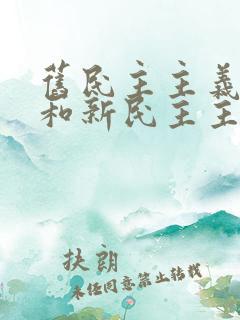 舊民主主義
和新民主主
扶朗
未经同意禁止转载